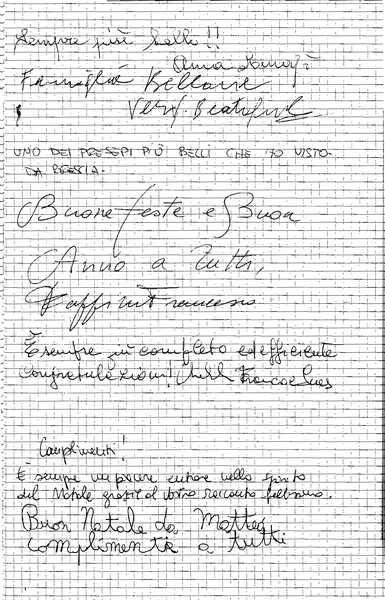 Sempre più bello!!
Anna
Famiglia Bellone
Very Beautiful
UNO DEI PRESEPI PIÙ BELLI CHE HO VISTO.
DA BRESIA.
Buone feste e Buon
Anno a tutti,
Francesco
È sempre più completo ed efficiente
Congratulazioni!
Complimenti!
È sempre un piacere entrare nello spirito
del Natale grazie al vostro racconto
Buon Natale da Matteo
complimenti a tutti